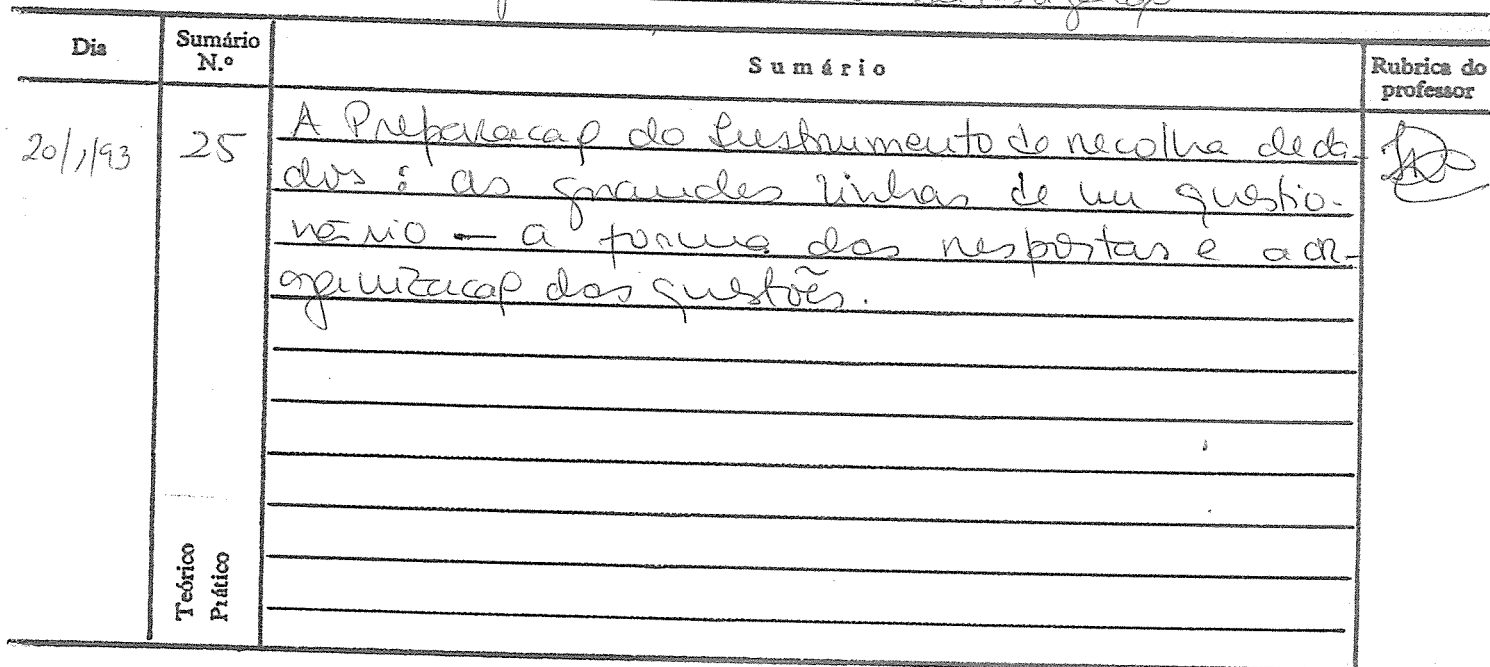 Dia Sumário N.º Sumário Rubrica do professor
20/1/93 25 A Preparação do Instrumento de recolha de da-
dos : as grandes linhas de um questio-
nário — a forma das respostas e a or-
ganização das questões.
Teórico
Prático